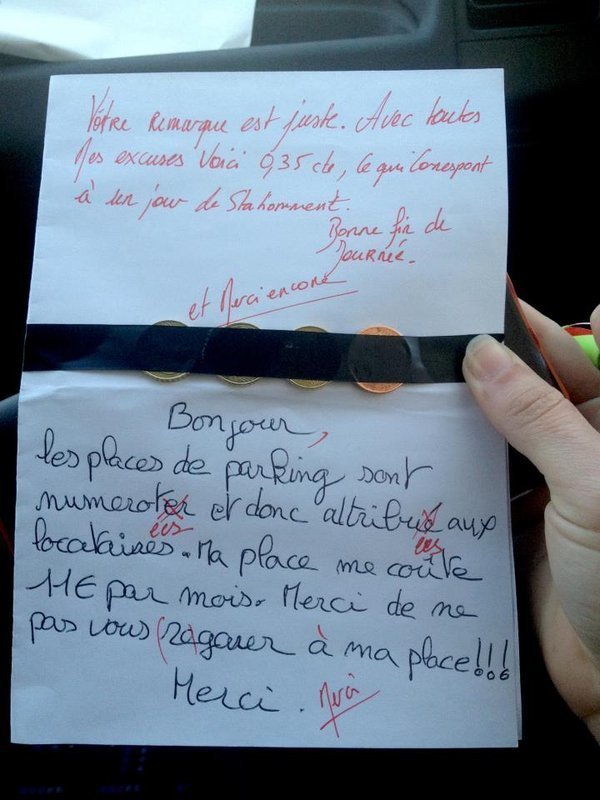 Votre remarque est juste. Avec toutes
Mes excuses Voici 0,35 cts, ce qui Correspont
à un jour de Stationnment.
Bonne fin de
Journée.
et Merci encore
Bonjour,
les places de parking sont
numeroter et donc attribué aux
ées ées
locataires. Ma place me coûte
11€ par mois. Merci de ne
pas vous (ra)garer à ma place!!!
Merci. Merci